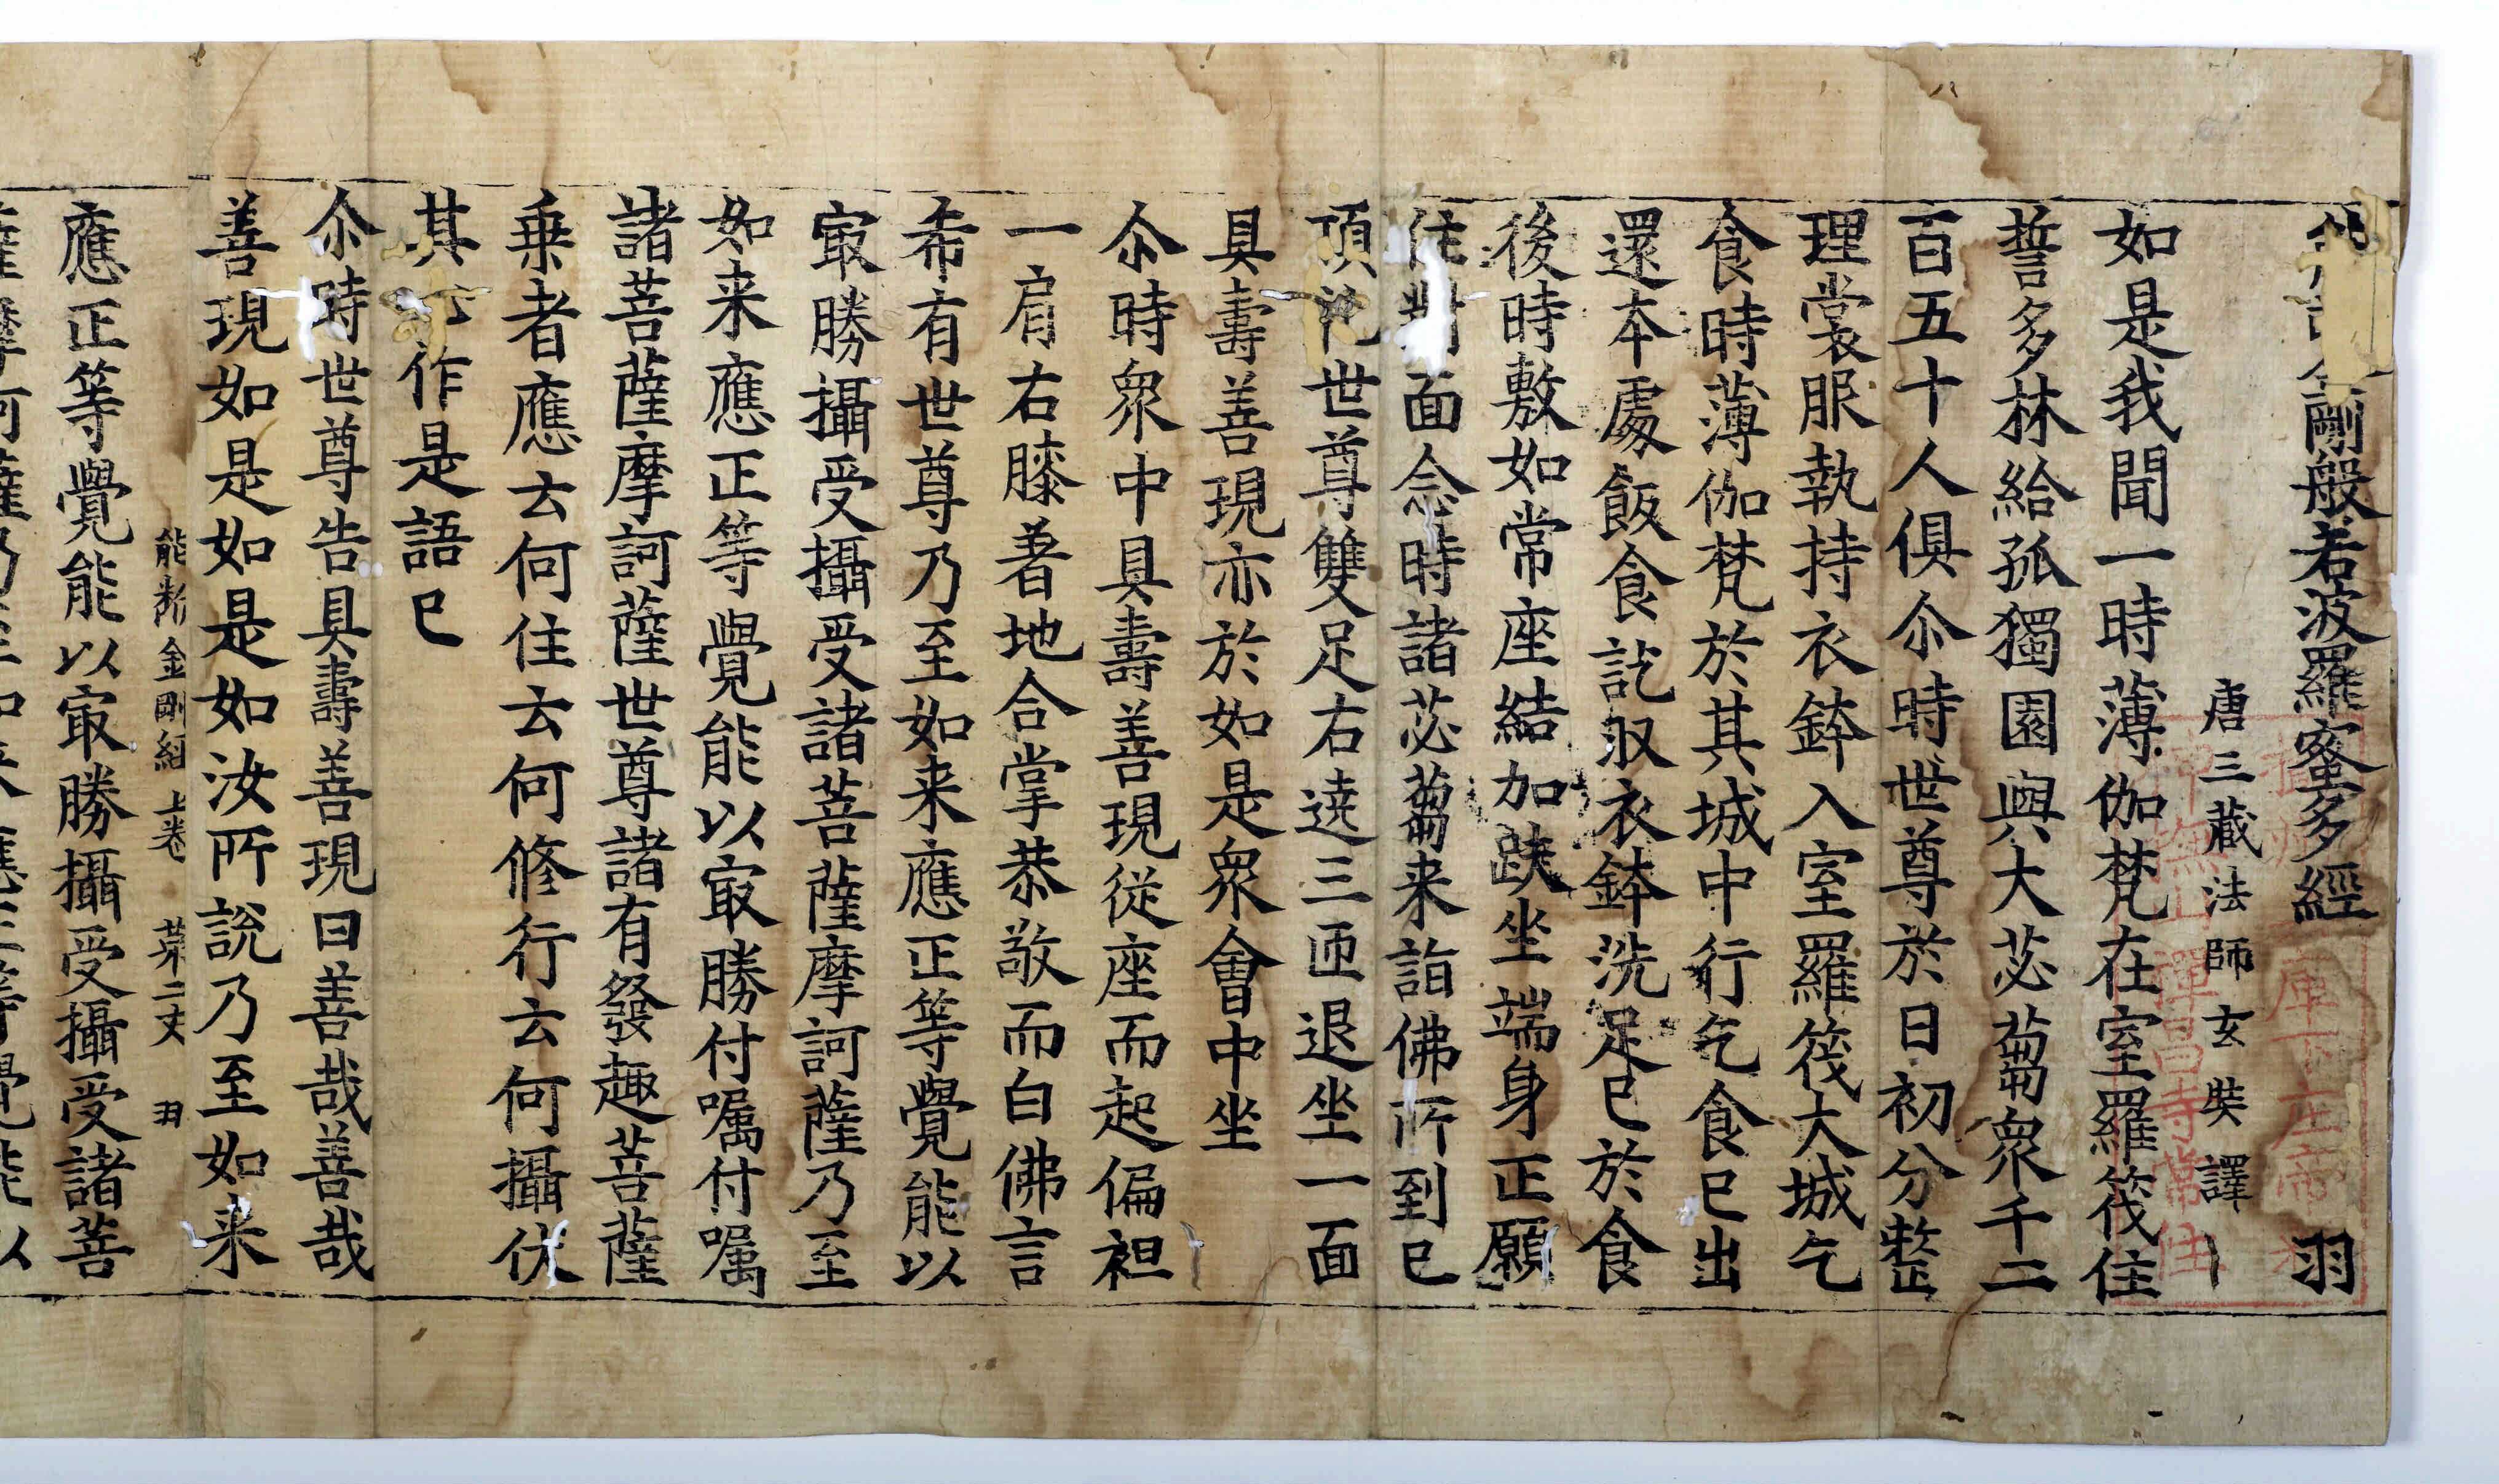 能斷金剛般若波羅蜜多經 羽
唐三藏法師玄奘譯
如是我聞一時薄伽梵在室羅筏住
誓多林給孤獨園與大苾蒭衆千二
百五十人俱尒時世尊於日初分整
理裳服執持衣鉢入室羅筏大城乞
食時薄伽梵於其城中行乞食已出
還本處飯食訖収衣鉢洗足已於食
後時敷如常座結加趺坐端身正願
住對面念時諸苾蒭来詣佛所到已
頂礼世尊雙足右遶三匝退坐一面
具壽善現亦於如是衆會中坐
尒時衆中具壽善現從座而起偏袒
一肩右膝著地合掌恭敬而白佛言
希有世尊乃至如来應正等覺能以
㝡勝攝受攝受諸菩薩摩訶薩乃至
如来應正等覺能以㝡勝付嘱付嘱
諸菩薩摩訶薩世尊諸有發趣菩薩
乗者應云何住云何修行云何攝伏
其心作是語已
尒時世尊告具壽善現曰善哉善哉
善現如是如是如汝所說乃至如来
能斷金剛經上卷 苐二丈 羽
應正等覺能以㝡勝攝受攝受諸菩
薩摩訶薩乃至如来應正等覺能以